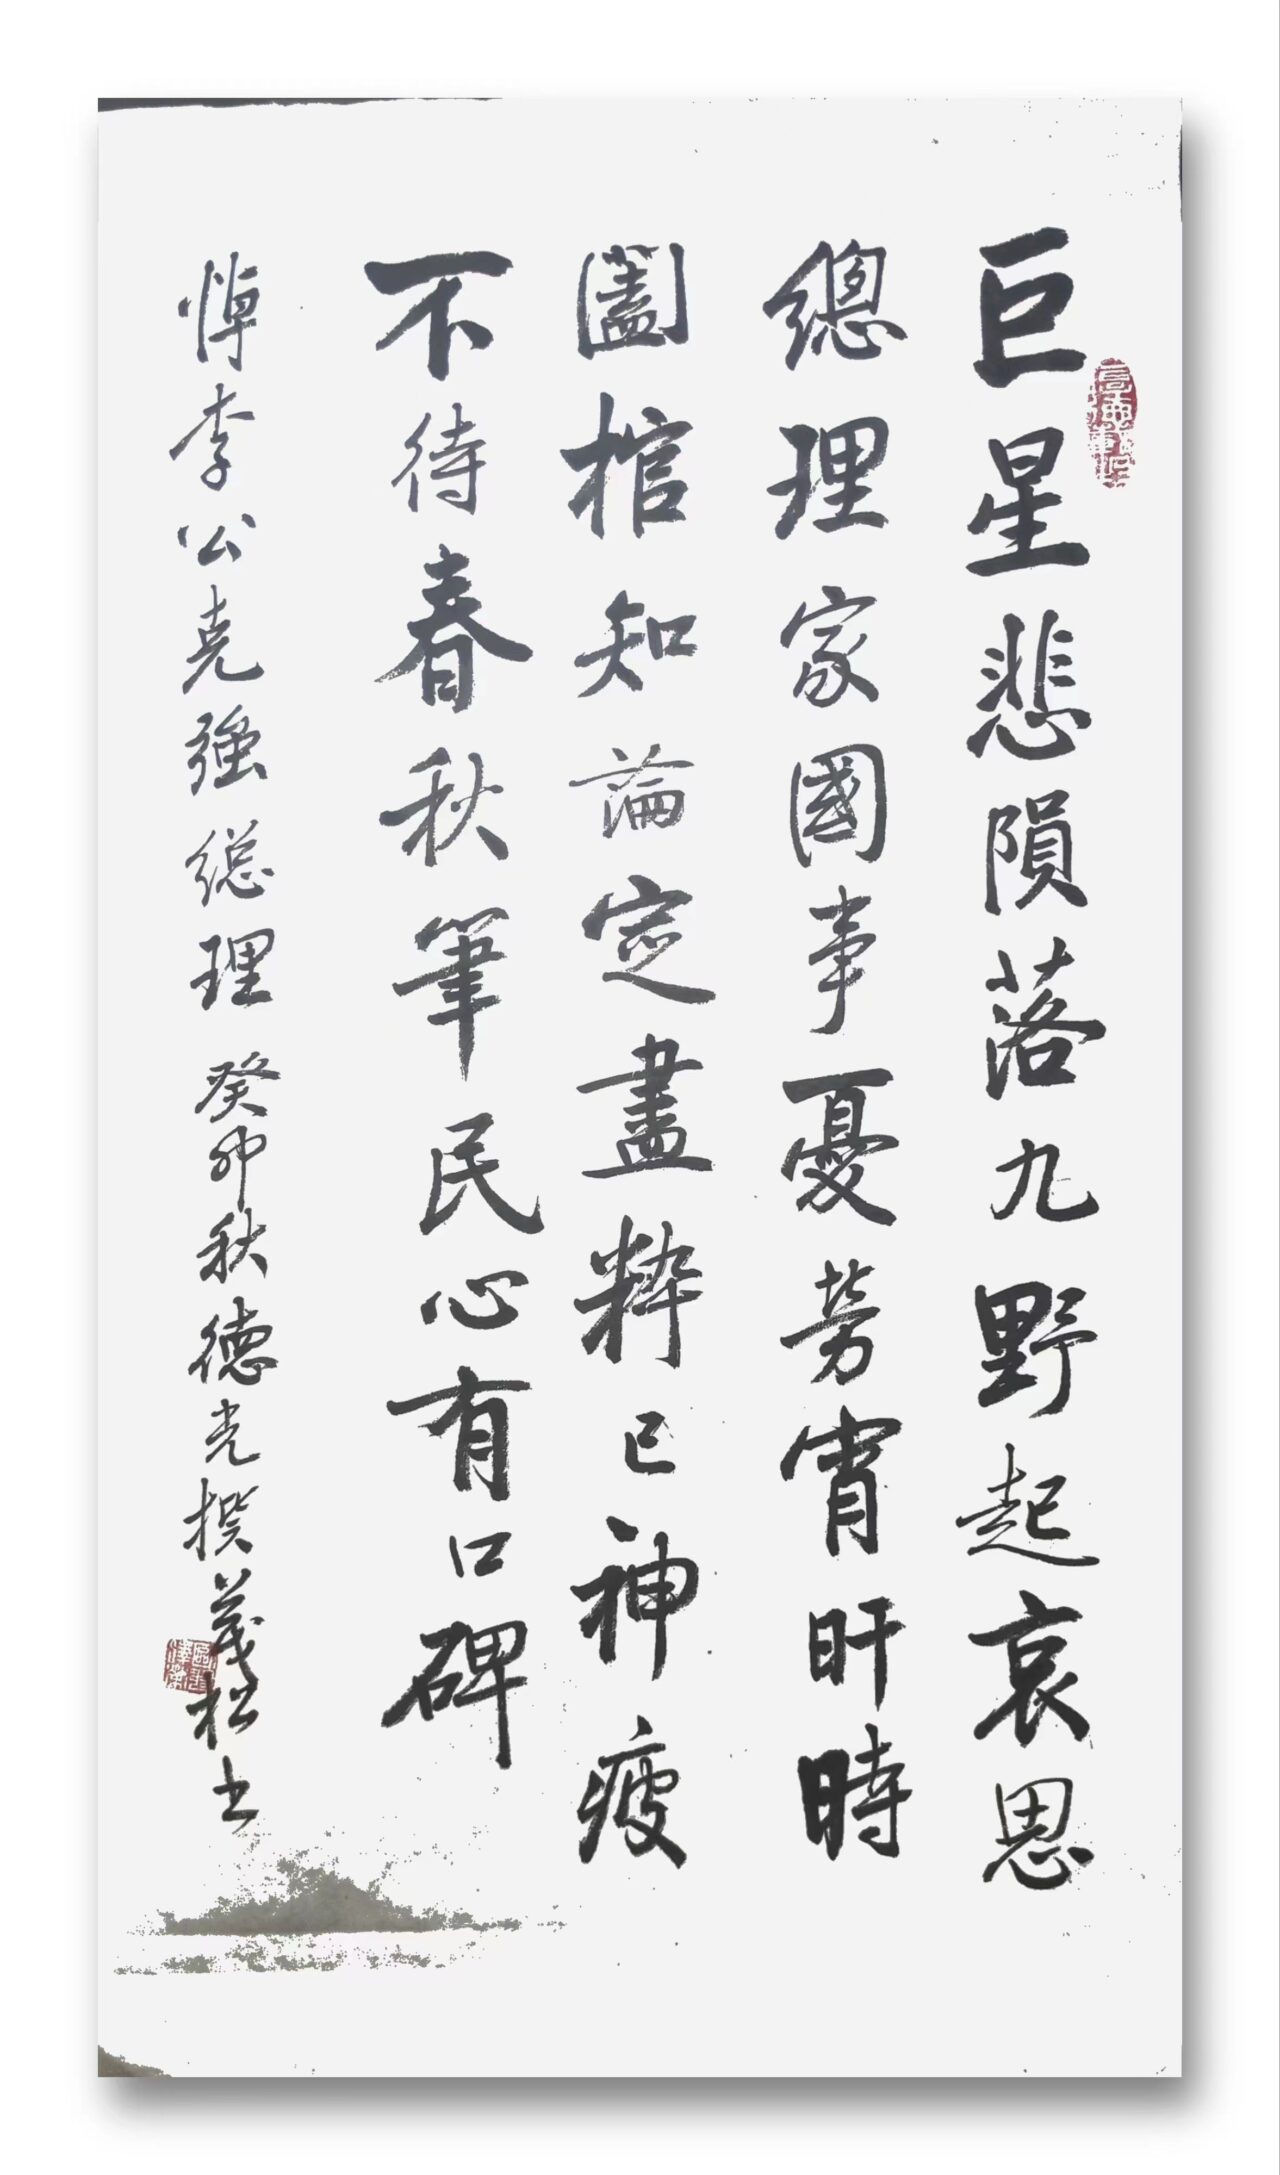 巨星悲隕落九野起哀思
總理家國事憂勞宵旰時
闔棺知論定盡粹已神疲
不待春秋筆民心有口碑
悼李公克強總理 癸卯秋德光撰義松书